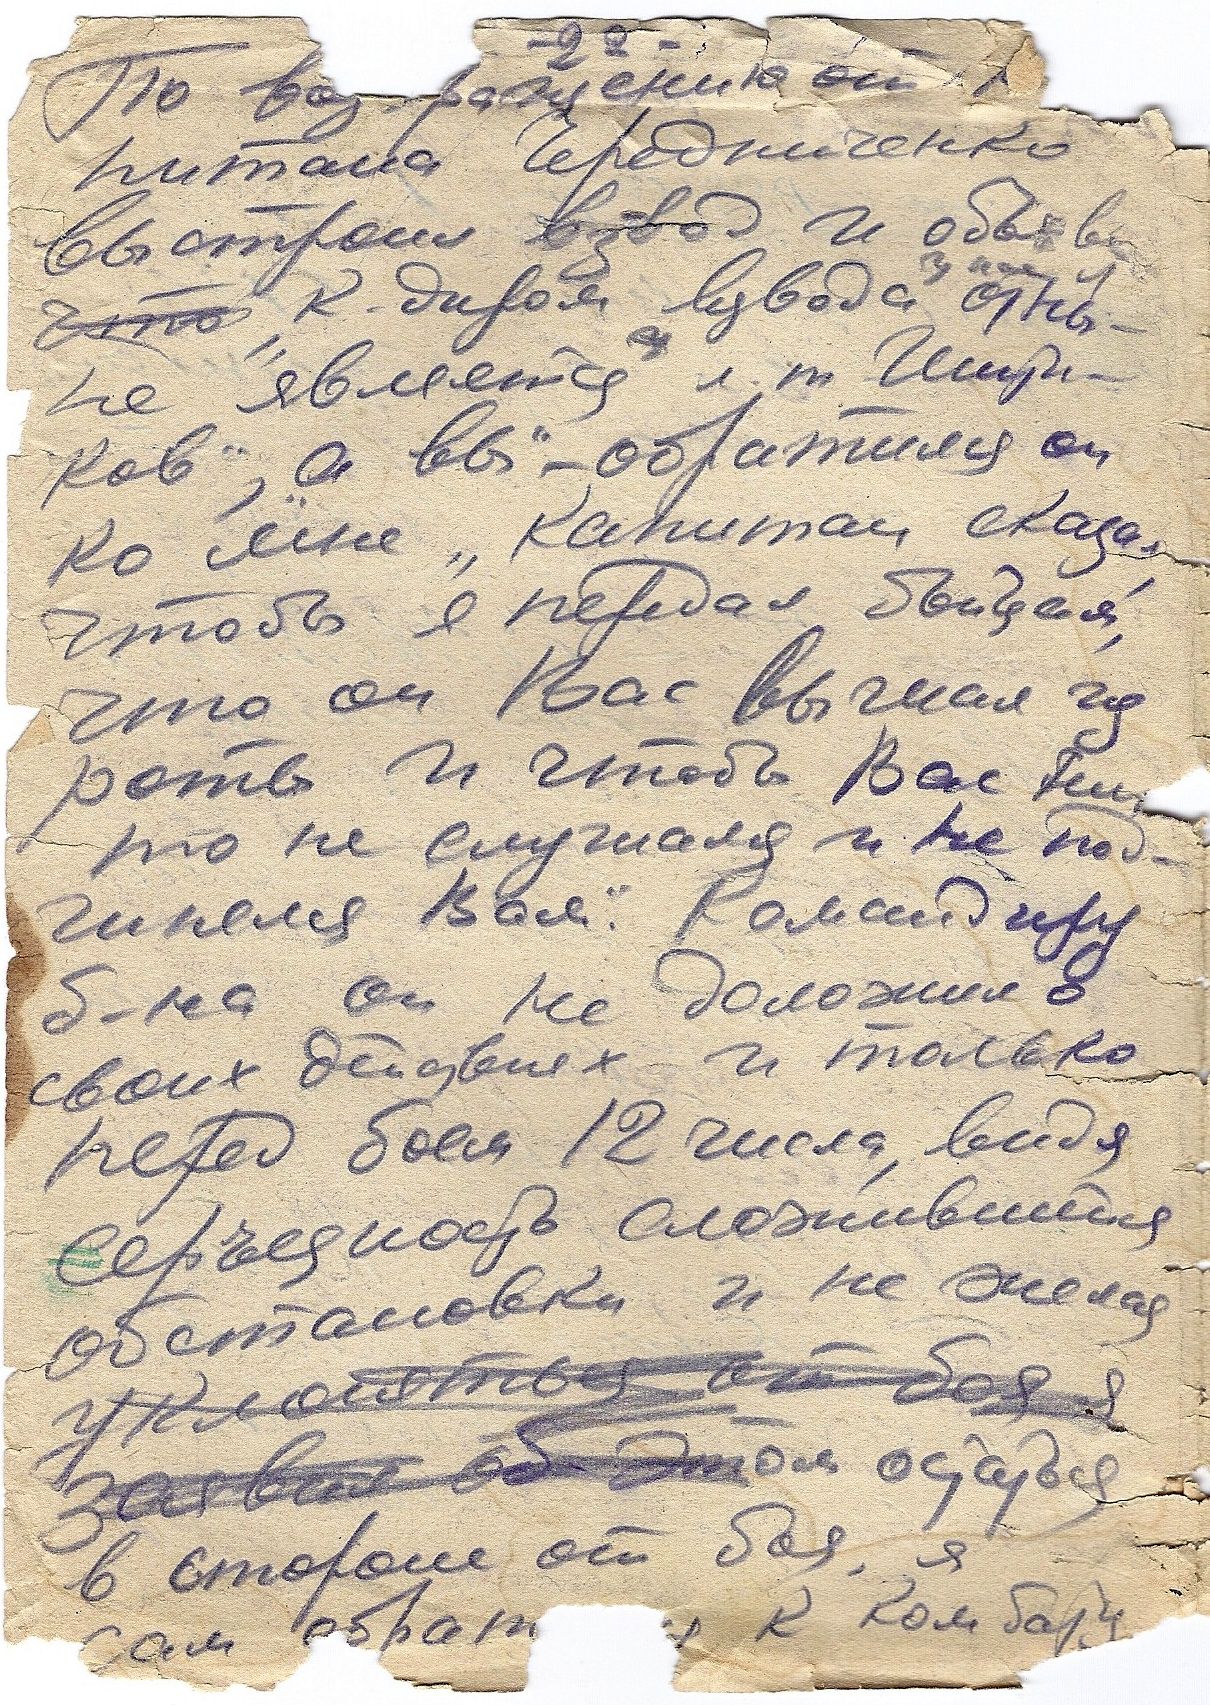 -22-
По возвращению от к
питана Чередниченко
выстроил взвод и объяви
что к-диром взвода отны-
не "является л-т Шири-
ков", а вы"-обратился он
ко мне „капитан сказал,
чтобы я передал бойцам,
что он Вас выгнал из
роты и чтобы Вас ник
то не слушался и не под-
чинялся Вам". Командиру
б-на он не доложил о
своих действиях и только
перед боем 12 числа, видя
серъезность сложившейся
обстановки и не желая
уклоняться от боя я
заявил об этом остаться
в стороне от боя, я
сам обрат я к комбату